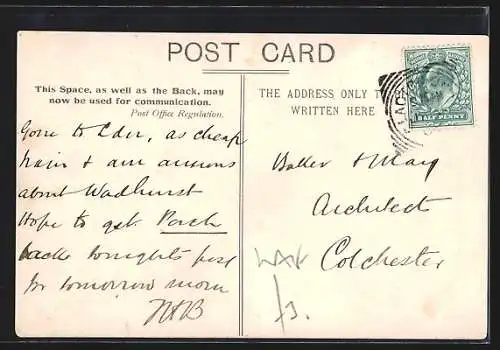 POST CARD
This Space, as well as the Back, may
now be used for communication.
Post Office Regulation.
Gone to as cheap
train & am anxious
about Wadhurst
Hope to get Porch
back tonights post
for tomorrow morn
THE ADDRESS ONLY T
WRITTEN HERE
& May
Architect
Colchester
/3.
HALF PENNY